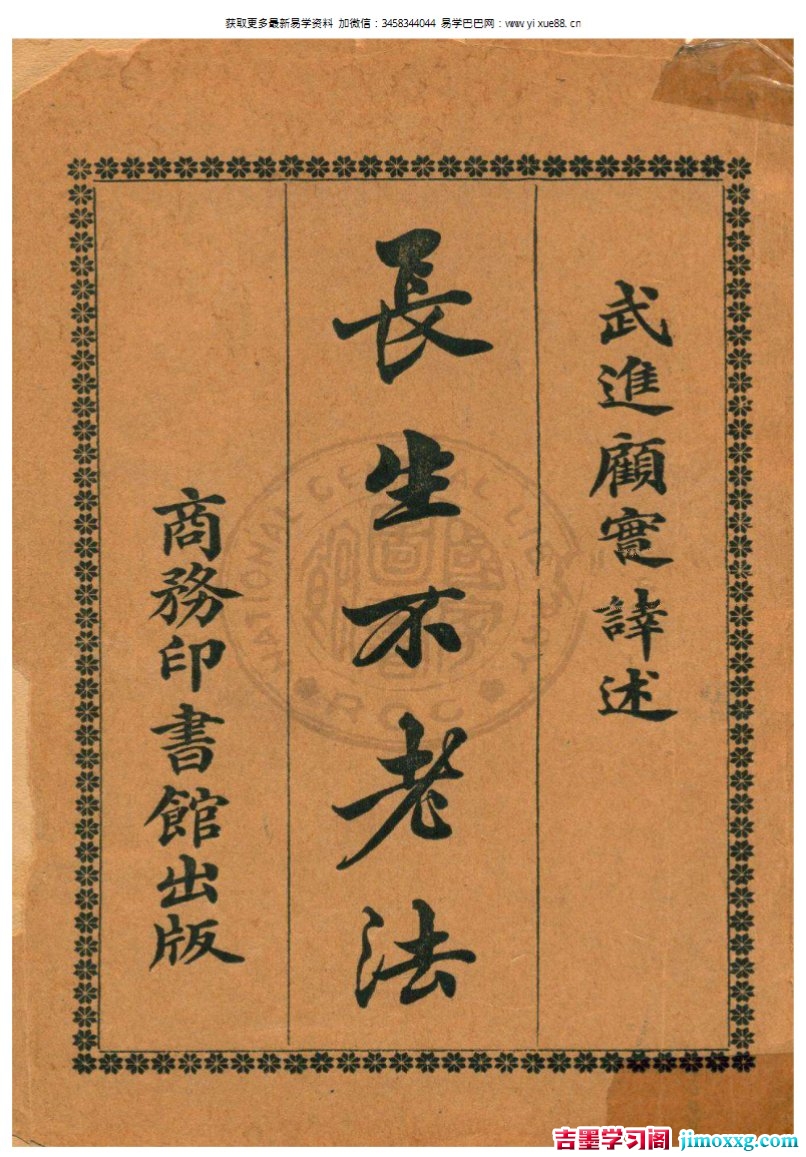 获取更多最新易学资料 加微信：3458344044 易学巴巴网：www.yixue88.cn
武進顧實譯述
長生不老法
商務印書館出版
NATIONAL CENTRAL LIBRARY
ROC
吉墨学习阁 jimoxxg.com